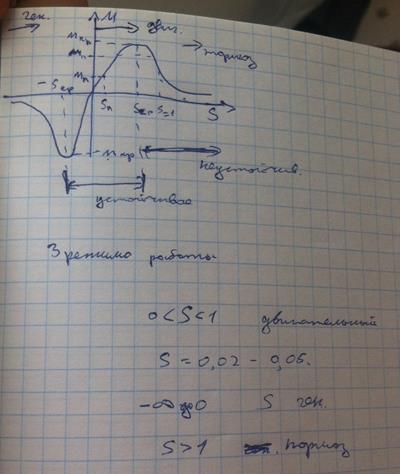 ген. M двиг.
Mкр тормоз
Mп
Mн
-Sкр Sн Sкр S=1 S
-Mкр
неустойчив.
устойчивое
3 режима работы
0<S<1 двигательный
S = 0,02 - 0,06.
-∞ до 0 S ген.
S>1 тормоз